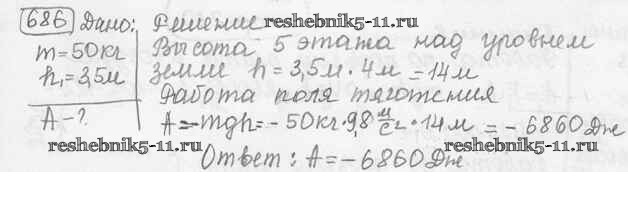 686 Дано: Решение
reshebnik5-11.ru
m=50кг Высота 5 этажа над уровнем
h₁=3,5м земли h=3,5м·4м=14м
Работа поля тяготения
A-? A=-mgh=-50кг·9,8 м/с²·14м=-6860Дж
reshebnik5-11.ru reshebnik5-11.ru
Ответ: A=-6860Дж